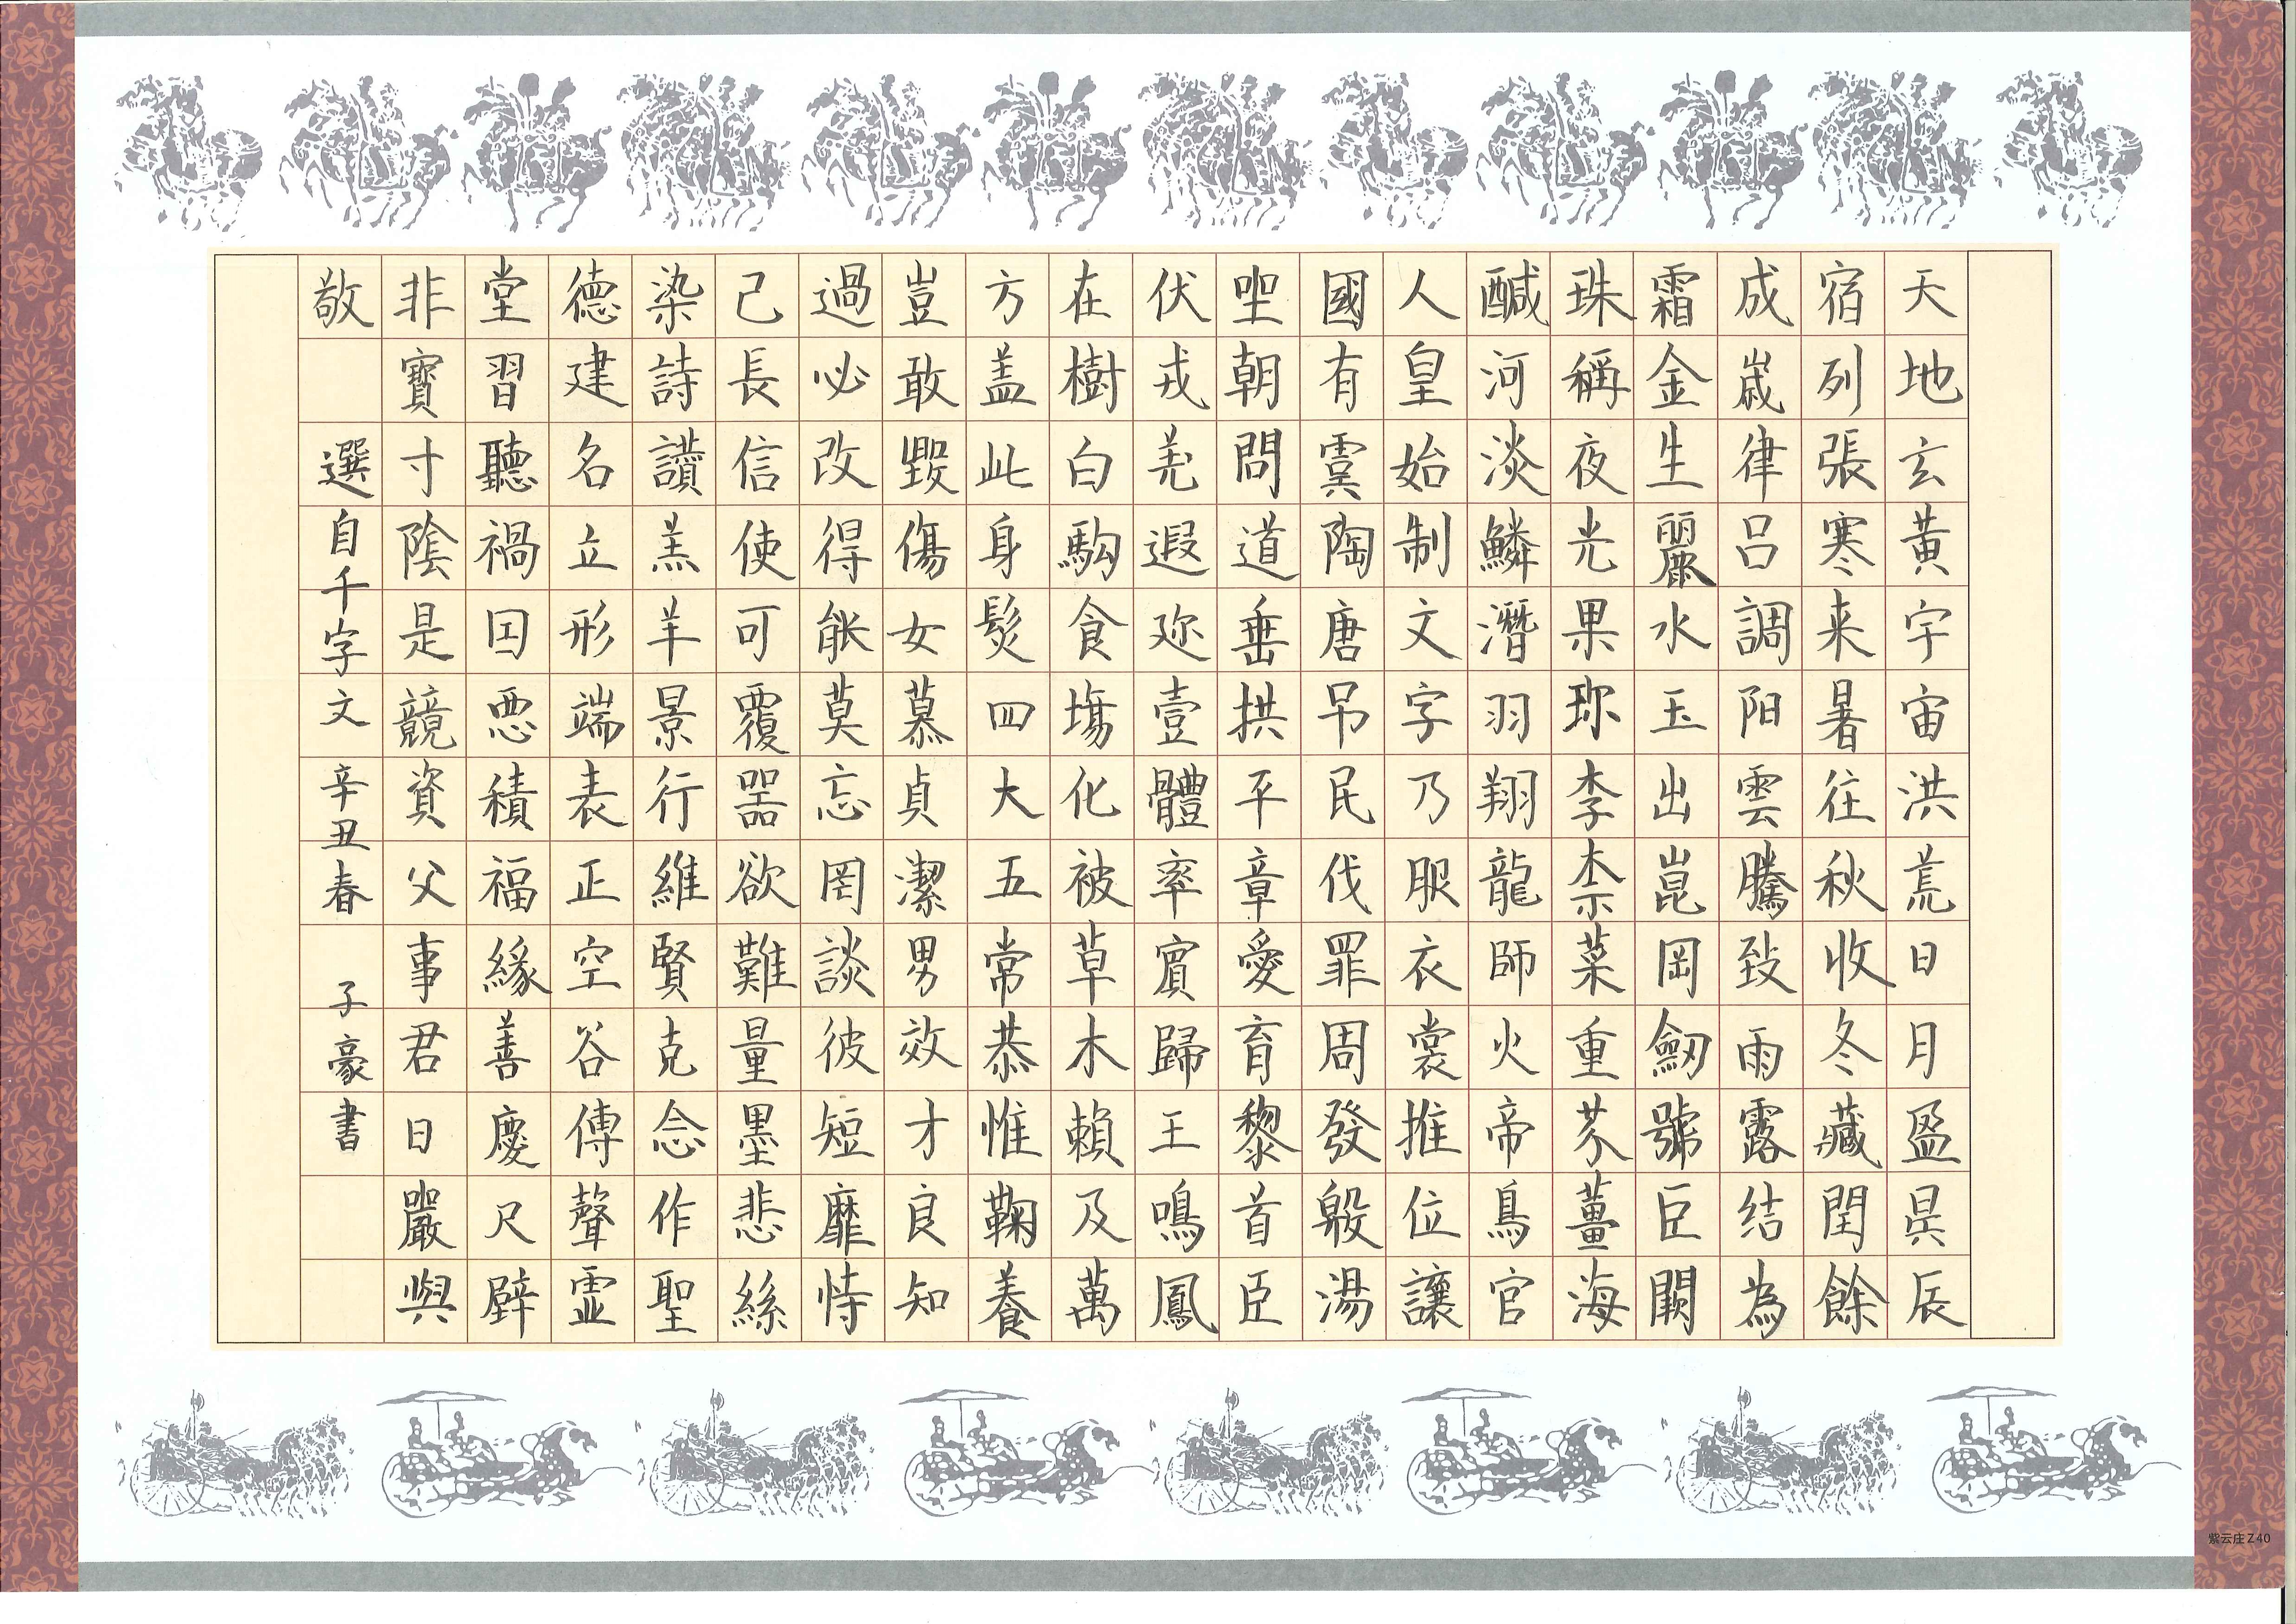 天地玄黃宇宙洪荒日月盈昃辰
宿列張寒来暑往秋收冬藏閏餘
成嵗律吕調阳雲騰致雨露结為
霜金生麗水玉出崑岡劒號巨闕
珠稱夜光果珎李柰菜重芥薑海
醎河淡鱗潛羽翔龍師火帝鳥官
人皇始制文字乃服衣裳推位讓
國有虞陶唐弔民伐罪周發殷湯
坐朝問道垂拱平章愛育黎首臣
伏戎羌遐迩壹體率賓歸王鳴鳳
在樹白駒食場化被草木賴及萬
方盖此身髮四大五常恭惟鞠養
豈敢毀傷女慕貞潔男效才良知
過必改得能莫忘罔談彼短靡恃
己長信使可覆器欲難量墨悲絲
染詩讚羔羊景行維賢克念作聖
德建名立形端表正空谷傳聲虛
堂習聽禍因惡積福緣善慶尺璧
非寶寸陰是競資父事君曰嚴與
敬
選自千字文 辛丑春 子豪書
紫云庄Z40